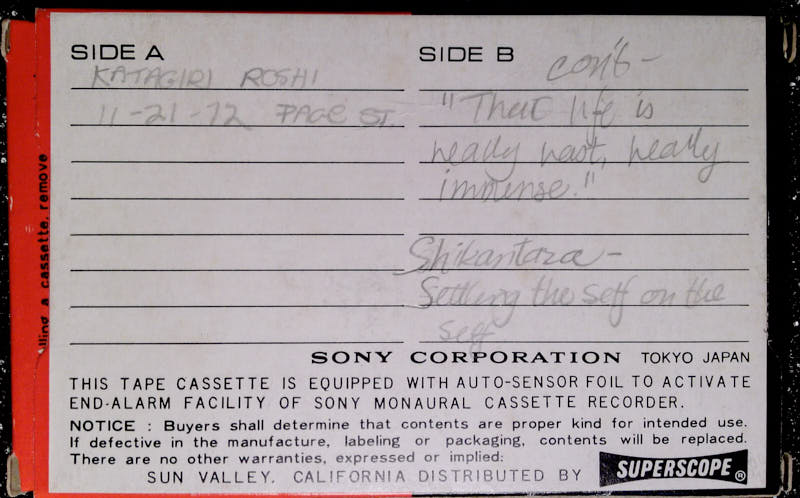 SIDE A
KATAGIRI ROSHI
11-21-72 PAGE ST.
SIDE B
con't -
"That life is
really vast, really
immense."
Shikantaza -
Settling the self on the
self
lling a cassette, remove
SONY CORPORATION TOKYO JAPAN
THIS TAPE CASSETTE IS EQUIPPED WITH AUTO-SENSOR FOIL TO ACTIVATE
END-ALARM FACILITY OF SONY MONAURAL CASSETTE RECORDER.
NOTICE : Buyers shall determine that contents are proper kind for intended use.
If defective in the manufacture, labeling or packaging, contents will be replaced.
There are no other warranties, expressed or implied:
SUN VALLEY, CALIFORNIA DISTRIBUTED BY SUPERSCOPE®